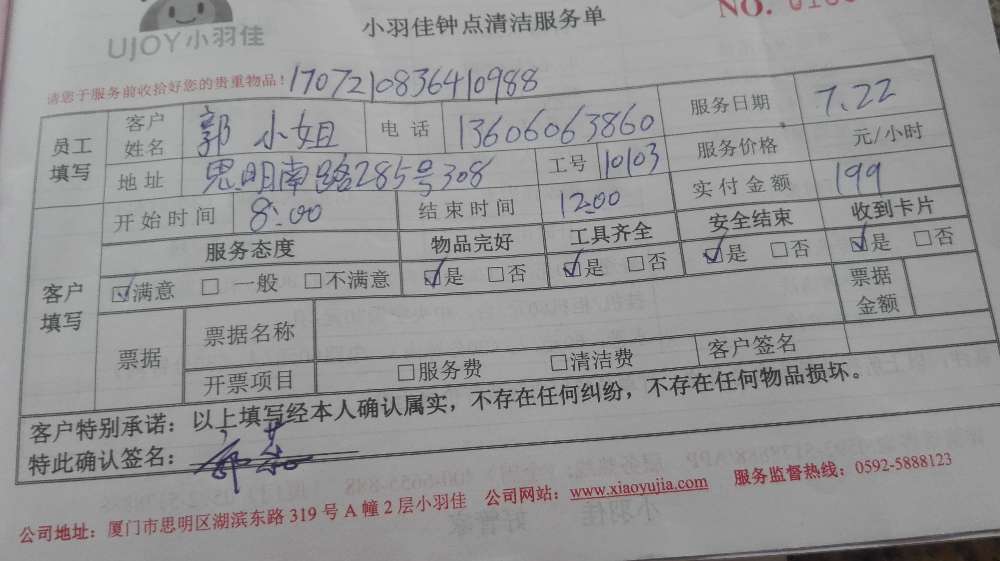 UJOY小羽佳
小羽佳钟点清洁服务单
NO.
请您于服务前收拾好您的贵重物品! 170721083641098​8
员工填写 客户姓名 郭小姐 电话 13606063860 服务日期 7.22
地址 思明南路285号308 工号 10103 服务价格 元/小时
开始时间 8:00 结束时间 12:00 实付金额 199
客户填写 服务态度 物品完好 工具齐全 安全结束 收到卡片
☑满意 □一般 □不满意 ☑是 □否 ☑是 □否 ☑是 □否 ☑是 □否
票据 票据名称 票据金额
开票项目 □服务费 □清洁费 客户签名
客户特别承诺：以上填写经本人确认属实，不存在任何纠纷，不存在任何物品损坏。
特此确认签名：
公司地址：厦门市思明区湖滨东路 319 号 A 幢 2 层小羽佳 公司网站：www.xiaoyujia.com 服务监督热线：0592-5888123